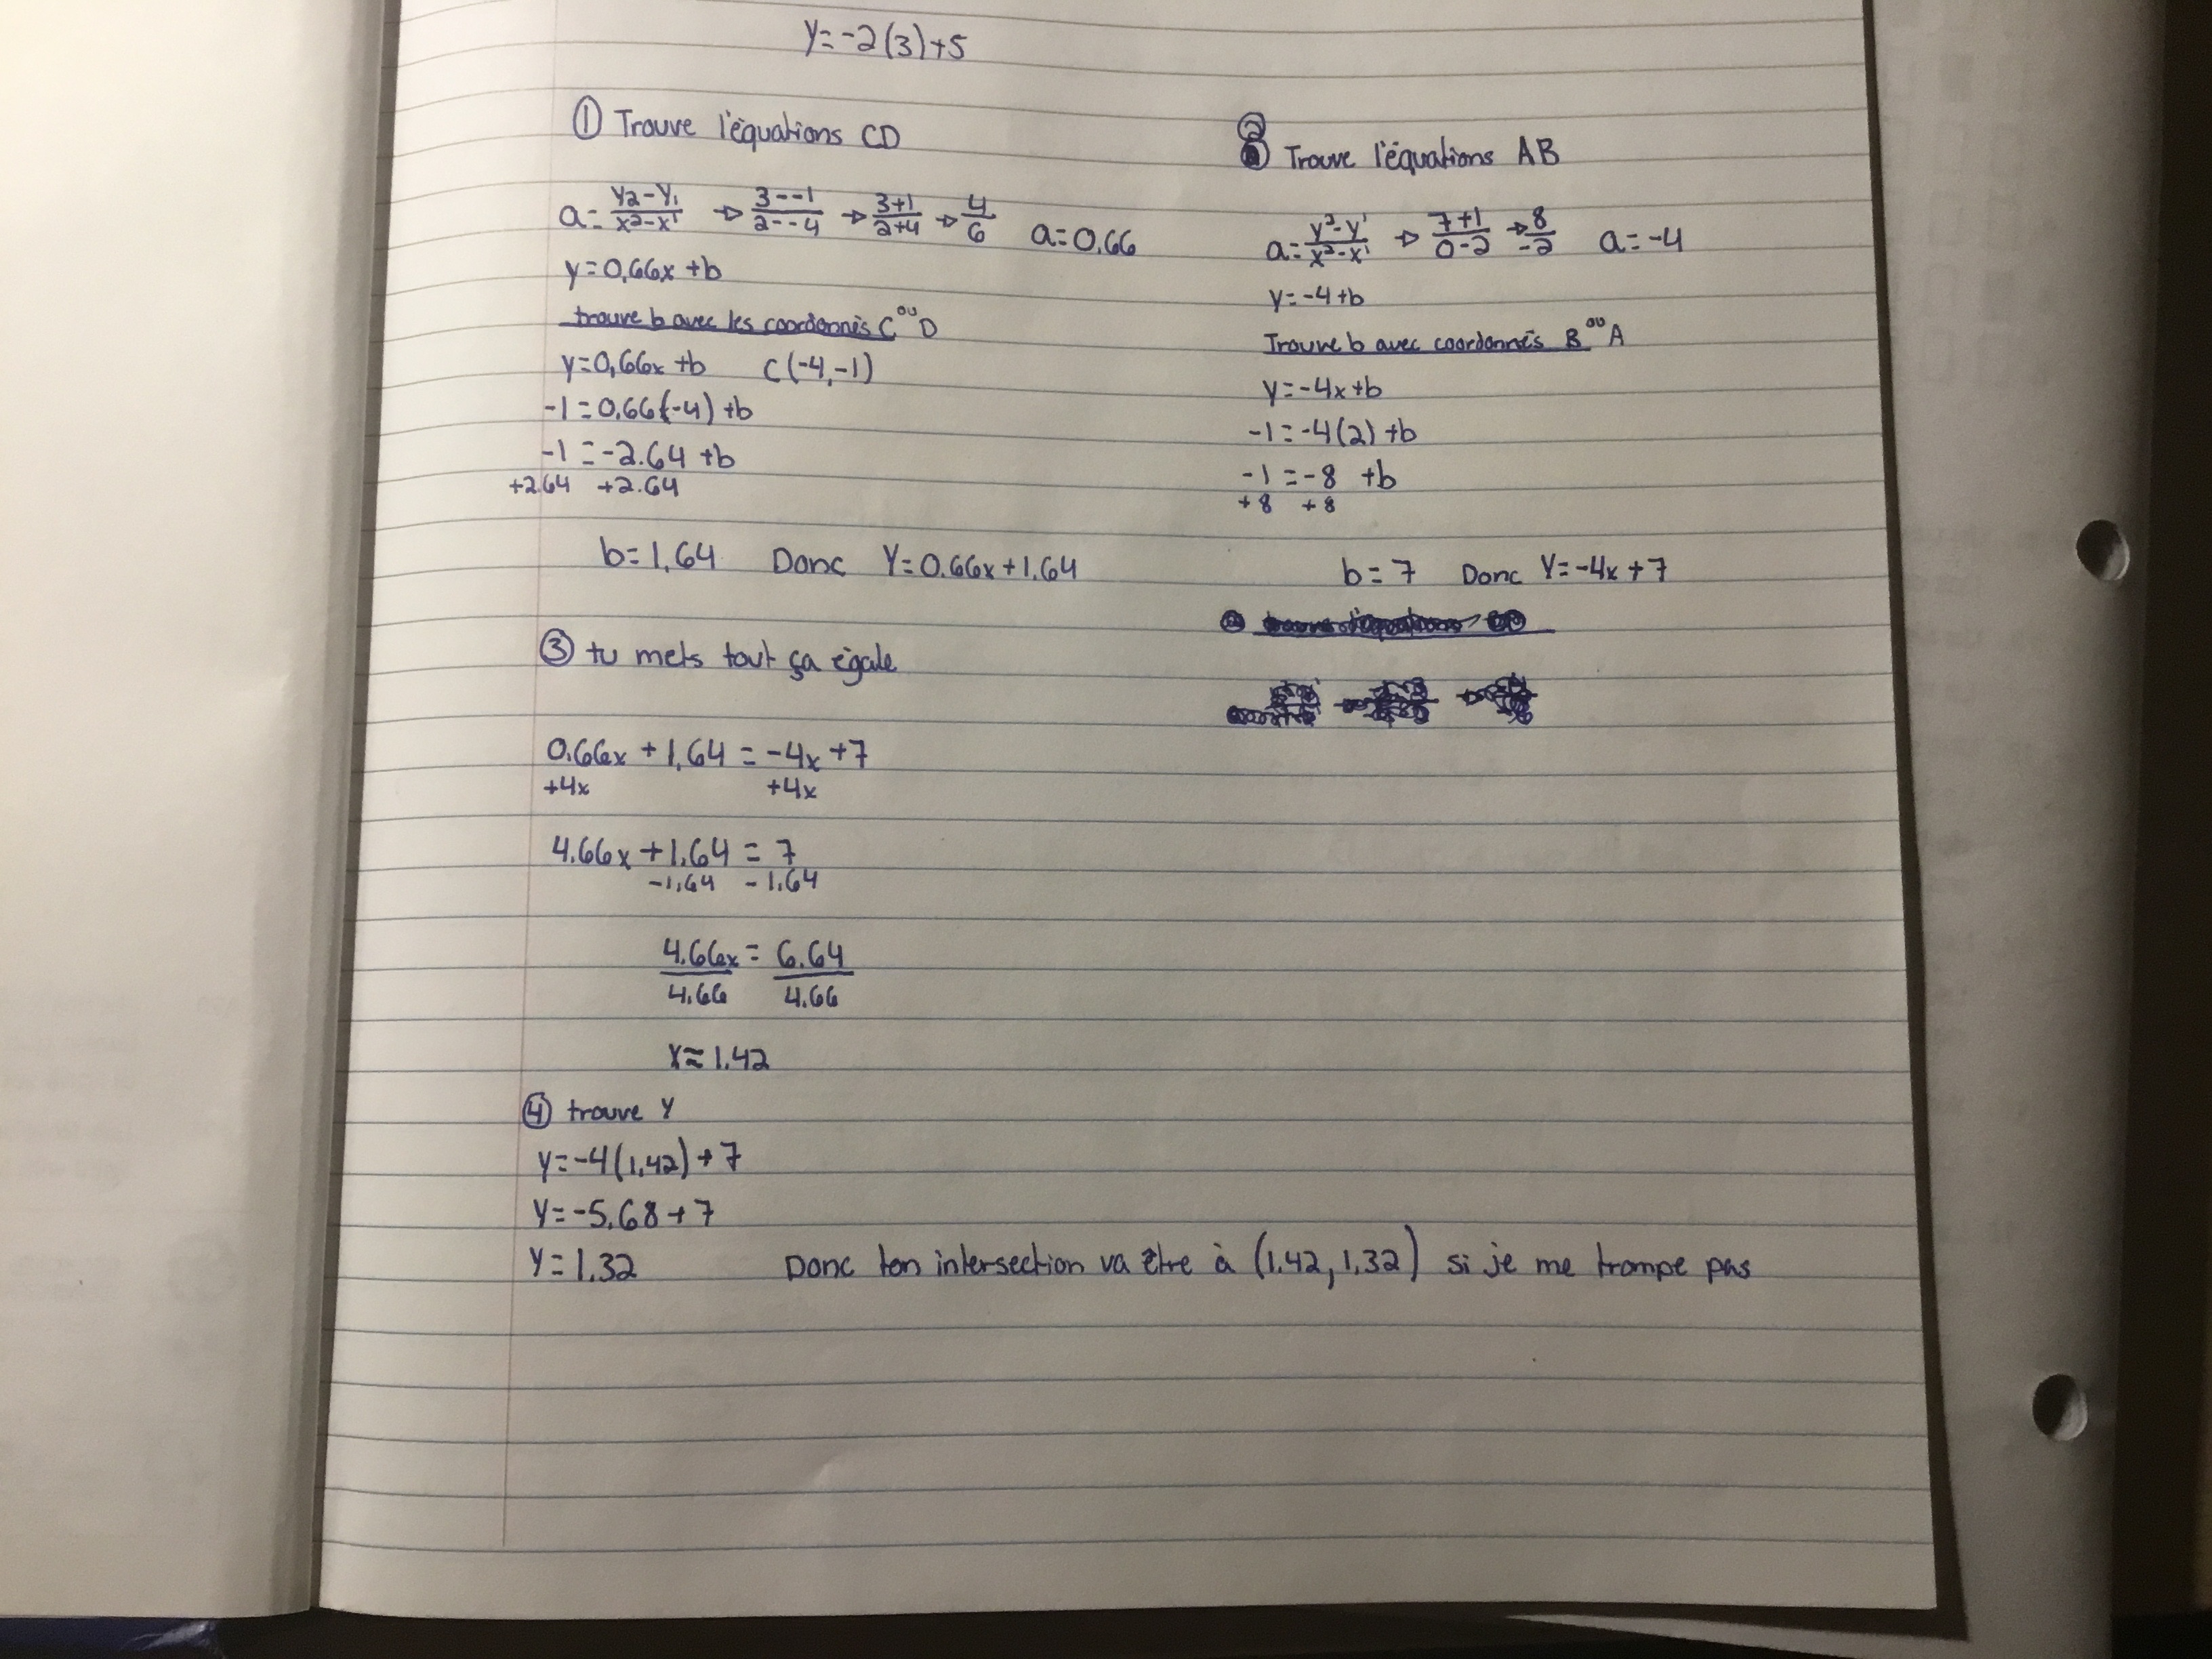 y=-2(3)+5
① Trouve l'équations CD
a=y2-y1/x2-x1 → 3--1/2--4 → 3+1/2+4 → 4/6 a=0.66
y=0,66x+b
trouve b avec les coordonnés C ou D
y=0,66x+b C(-4,-1)
-1=0.66(-4)+b
-1=-2.64+b
+2.64 +2.64
b=1,64 Donc Y=0.66x+1.64
② Trouve l'équations AB
a=y2-y1/x2-x1 → 7+1/0-2 → 8/-2 a=-4
y=-4+b
Trouve b avec coordonnés B ou A
y=-4x+b
-1=-4(2)+b
-1=-8 +b
+8 +8
b=7 Donc Y=-4x+7
③ tu mets tout ça égale
0.66x+1,64=-4x+7
+4x +4x
4.66x+1.64=7
-1,64 -1.64
4.66x=6.64
4.66 4.66
x≈1.42
④ trouve Y
y=-4(1,42)+7
Y=-5.68+7
Y=1.32 Donc ton intersection va être à (1.42,1.32) si je me trompe pas